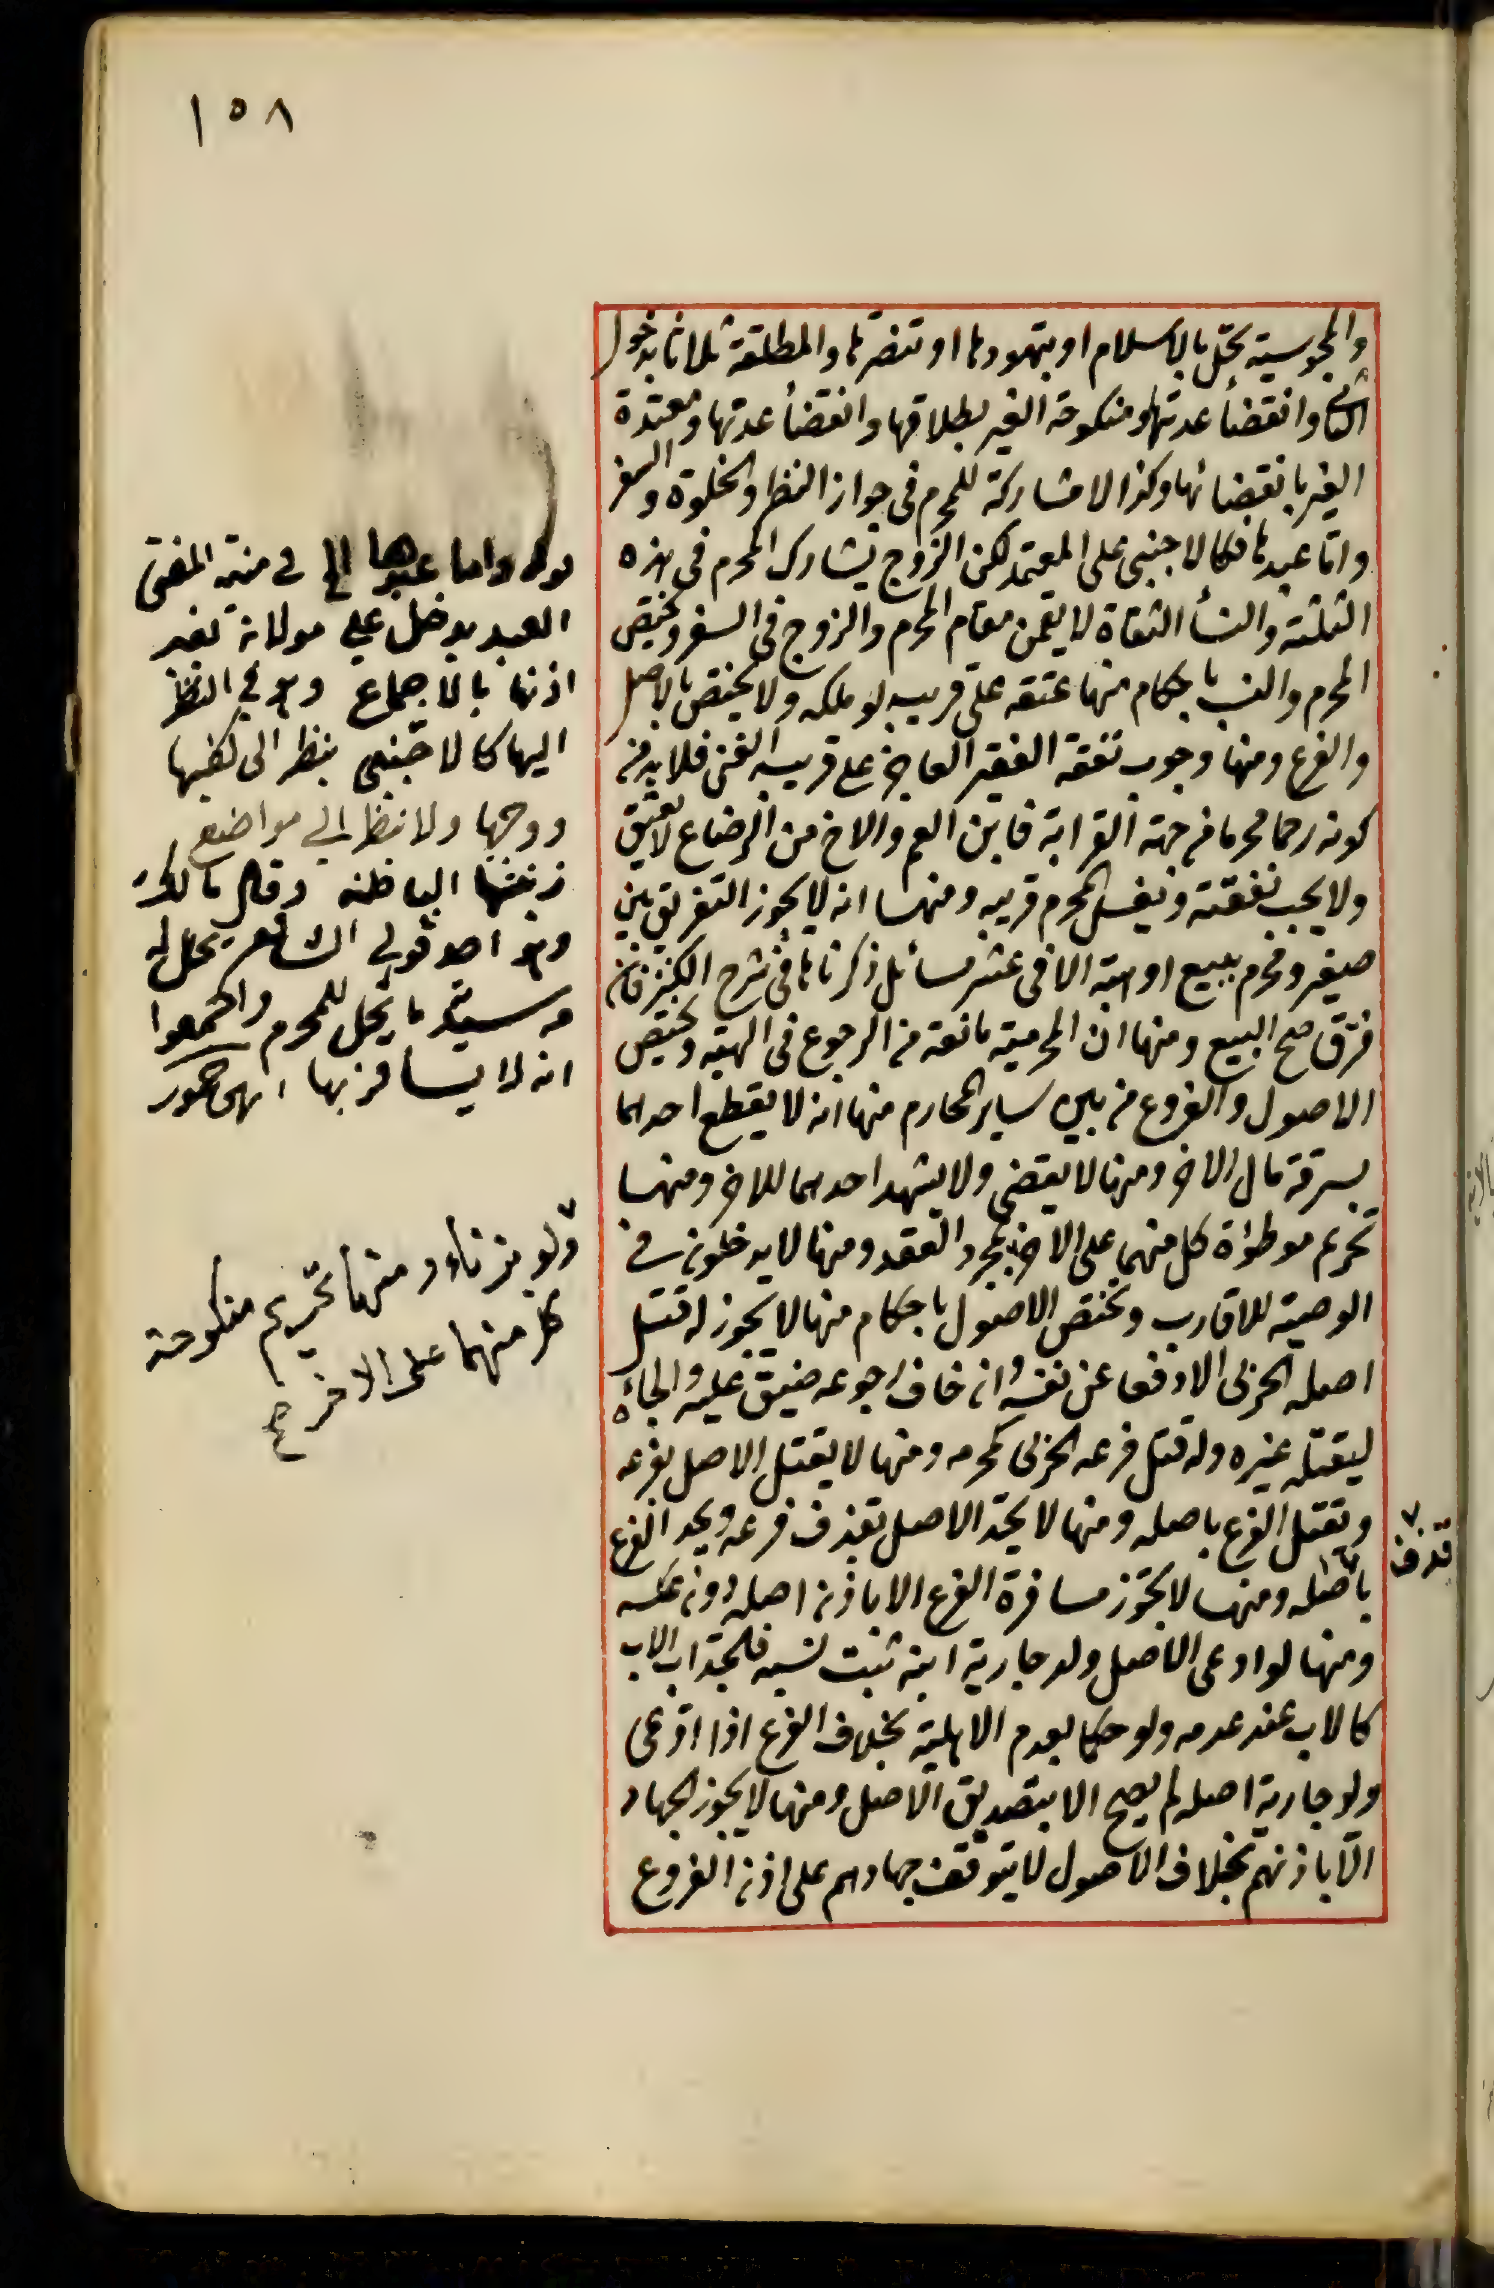 ١٥٨
والمجوسية تحل بالاسلام او بتهودها او تنصرها والمطلقة ثلاثا بدخول
الثانى وانقضأ عدتها ومنكوحة الغير بطلاقها وانقضأ عدتها ومعتدة
الغير بانقضائها وكذا لا مشاركة للمحرم فى جواز النظر والخلوة والسفر
واما عبدها فكالاجنبى على المعتمد لكن الزوج يشارك المحرم فى هذه
الثلثة والنسأ الثقاة لا يقمن مقام المحرم والزوج فى السفر ويختص
المحرم والنسب باحكام منها عتقه على قريبه لو ملكه ولا يختص بالاصل
والفرع ومنها وجوب نفقة الفقير العاجز على قريبه الغنى فلا بد من
كونه رحما محرما من جهة القرابة فابن العم والاخ من الرضاع لا يعتق
ولا يجب نفقته ويغسل المحرم قريبه ومنها انه لا يجوز التفريق بين
صغير ومحرم ببيع او هبة الا فى عشر مسائل ذكرناها فى شرح الكنز فان
فرق صح البيع ومنها ان المحرمية مانعة من الرجوع فى الهبة ويختص
الاصول والفروع من بين سائر المحارم منها انه لا يقطع احدهما
بسرقة مال الاخر ومنها لا يقضى ولا يشهد احدهما للاخر ومنها
تحريم موطؤة كل منهما على الاخر بمجرد العقد ومنها لا يدخلون فى
الوصية للاقارب وتختص الاصول باحكام منها لا يجوز له قتل
اصله الحربى الا دفعا عن نفسه وان خاف رجوعه ضيق عليه والجأه
ليقتله غيره وله قتل فرعه الحربى كمحرمه ومنها لا يقتل الاصل بفرعه
ويقتل الفرع باصله ومنها لا يحد الاصل بقذف فرعه ويحد الفرع
باصله ومنها لا تجوز مسافرة الفرع الا باذن اصله دون عكسه
ومنها لو ادعى الاصل ولد جارية ابنه ثبت نسبه والجد اب الاب
كالاب عند عدمه ولو حكما بعدم الاهلية بخلاف الفرع اذا ادعى
ولد جارية اصله لم يصح الا بتصديق الاصل ومنها لا يجوز الجهاد
الا باذنهم بخلاف الاصول لا يتوقف جهادهم على اذن الفروع
قوله واما عبدها الخ فى منية المفتى
العبد يدخل على مولاته بغير
اذنها بالاجماع وهو فى النظر
اليها كالاجنبى ينظر الى كفيها
ووجهها ولا ينظر الى مواضع
زينتها الباطنه وقال مالك
وهو احد قولى الشافعى يحل له
من سيدته ما يحل للمحرم واجمعوا
انه لا يسافر بها انتهى حموى
ولو بزناء ومنها تحريم منكوحة
كل منهما على الاخر صح
قذف